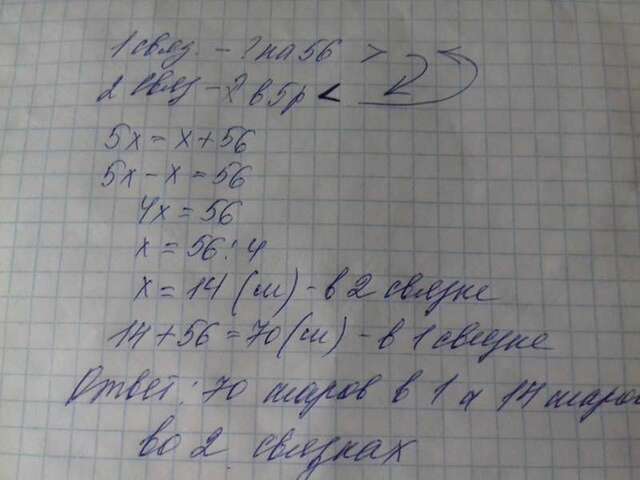 1 связ. - ? на 56 >
2 связ - ? в 5р <
5x = x + 56
5x - x = 56
4x = 56
x = 56 : 4
x = 14 (ш) - в 2 связке
14 + 56 = 70 (ш) - в 1 связке
Ответ: 70 шаров в 1 и 14 шаров
во 2 связках